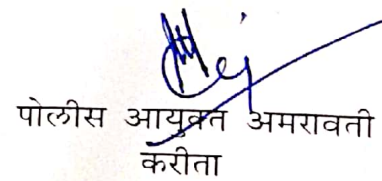 पोलीस आयुक्त अमरावती
करीता